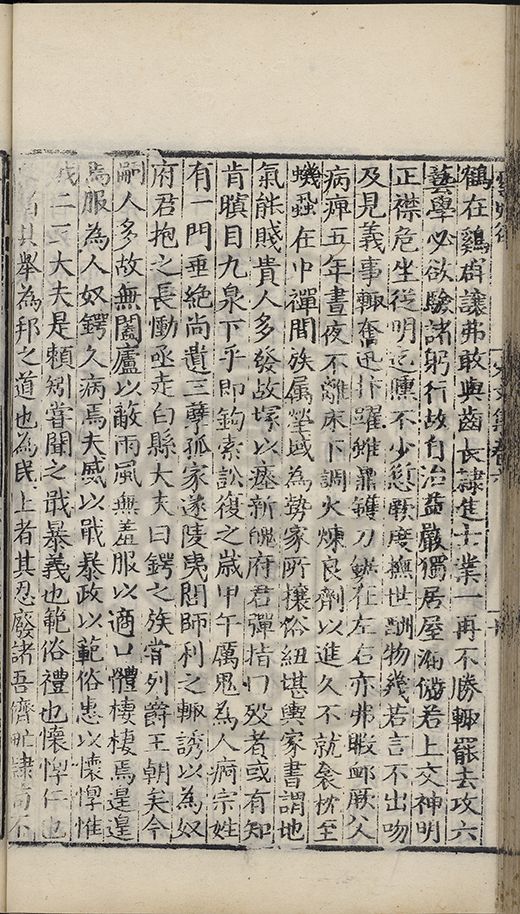 鶴在鷄羣讓弗敢與齒長隷隽士業一再不勝輙罷去攻六
藝學必欲驗諸躬行故自治益嚴獨居屋漏儼若上交神明
正襟危生從明迄曛不少愆厥度撫世酬物幾若言不出吻
及見義事輙奮迅抃躍雖鼎鑊刀鋸在左右亦弗暇䘏厥父
病痺五年晝夜不離床下調火煉良劑以進久不就衾枕至
蟣蝨在巾襌間族属塋域為勢家所攘俗紐堪輿家書謂地
氣能賤貴人多發故塚以瘞新醜府君彈指曰殁者或有知
肯瞑目九泉下乎即鈎索訟復之嵗甲午厲鬼為人痾宗姓
有一門垂絶尚遺三孽孤家遂陵夷閭師利之輙誘以為奴
府君抱之長慟亟走白縣大夫曰鍔之族甞列爵王朝矣今
嗣人多故無闔廬以蔽雨風無羞服以適口體棲棲焉遑遑
焉服為人奴鍔久病焉夫烕以戢暴政以範俗惠以懷惸惟
二三大夫是頼矧甞聞之戢暴義也範俗禮也懷惸仁也
其舉為邦之道也為民上者其忍廢諸吾儕甿隷尚不